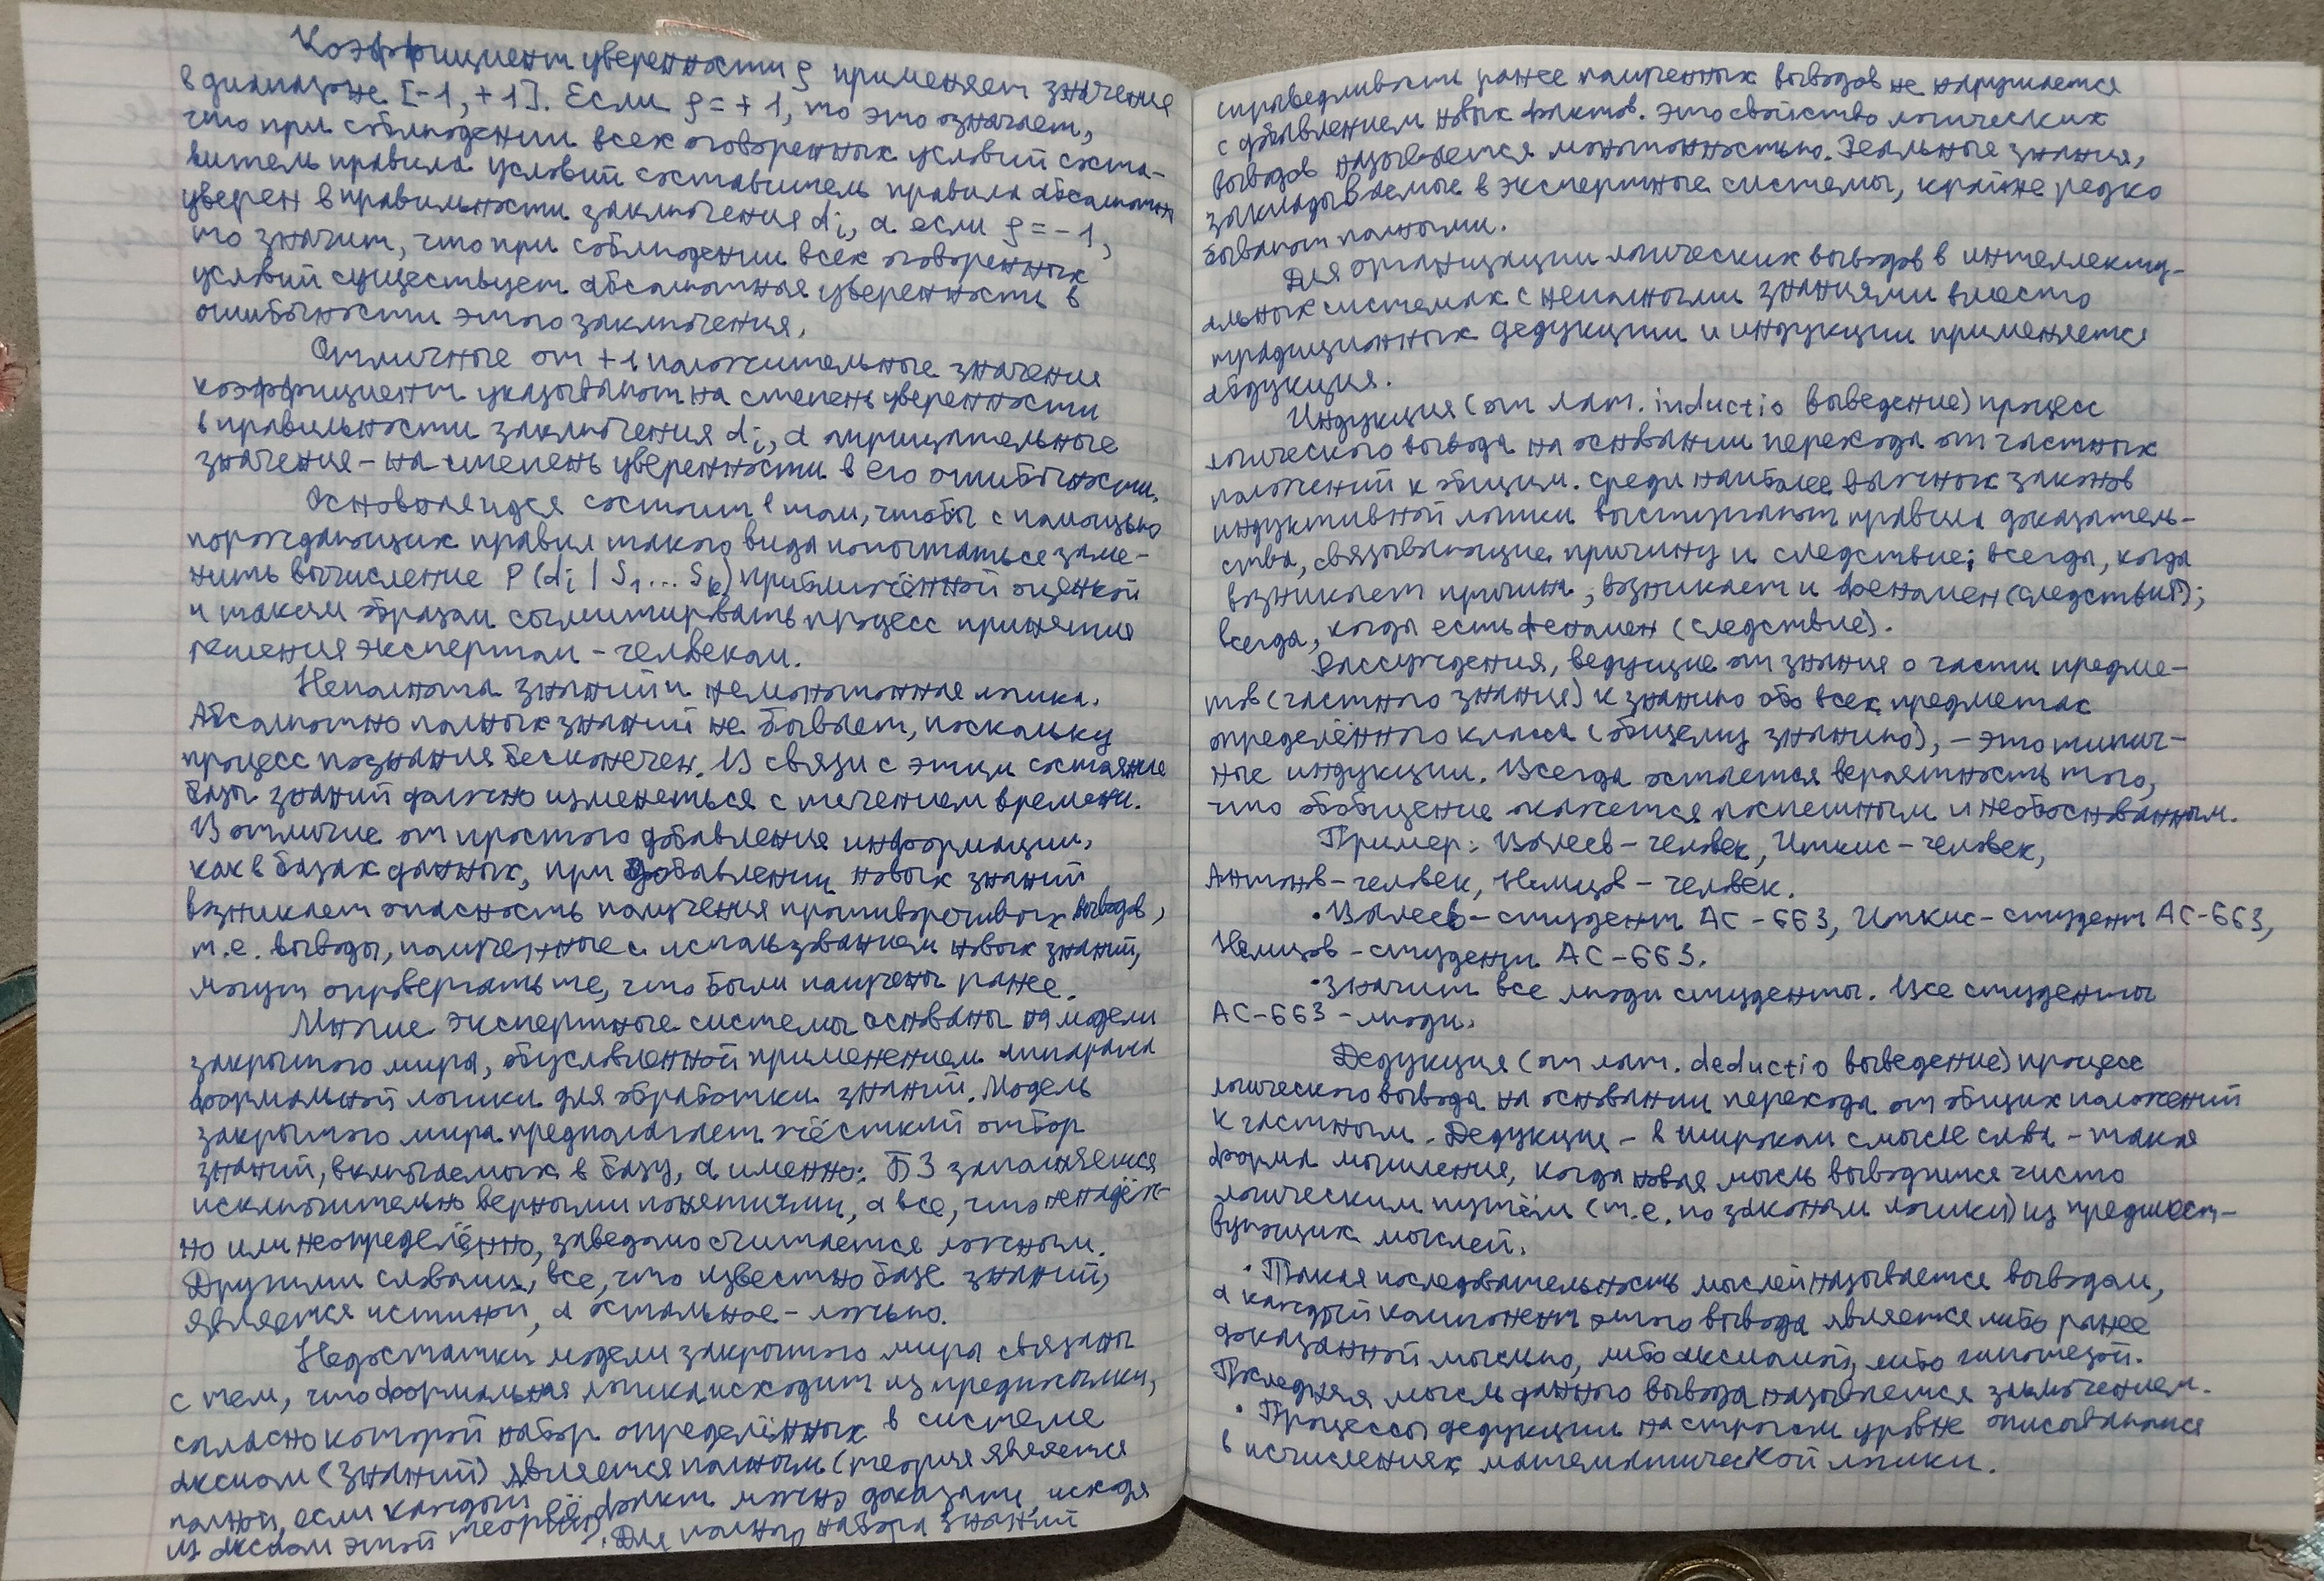 Коэффициент уверенности ρ применяет значения
в диапазоне [-1, +1]. Если ρ = +1, то это означает,
что при соблюдении всех оговоренных условий соста-
витель правила условий составитель правила абсолютно
уверен в правильности заключения di, а если ρ = -1,
то значит, что при соблюдении всех оговоренных
условий существует абсолютная уверенность в
ошибочности этого заключения.
Отличные от +1 положительные значения
коэффициент указывают на степень уверенности
в правильности заключения di, а отрицательные
значения - на степень уверенности в его ошибочности.
Основная идея состоит в том, чтобы с помощью
порождающих правил такого вида попытаться заме-
нить вычисление P(di | S1 ... Sk) приближённой оценкой
и таким образом сымитировать процесс принятия
решения экспертом - человеком.
Неполнота знаний и немонотонная логика.
Абсолютно полных знаний не бывает, поскольку
процесс познания бесконечен. В связи с этим состояние
базы знаний должно изменяться с течением времени.
В отличие от простого добавления информации,
как в базах данных, при добавлении новых знаний
возникает опасность получения противоречивых выводов,
т.е. выводы, полученные с использованием новых знаний,
могут опровергать те, что были получены ранее.
Многие экспертные системы основаны на модели
закрытого мира, обусловленной применением аппарата
формальной логики для обработки знаний. Модель
закрытого мира предполагает жёсткий отбор
знаний, включаемых в базу, а именно: БЗ заполняется
исключительно верными понятиями, а все, что ненадёж-
но или неопределённо, заведомо считается ложным.
Другими словами, все, что известно базе знаний,
является истиной, а остальное - ложью.
Недостатки модели закрытого мира связаны
с тем, что формальная логика исходит из предпосылки,
согласно которой набор определённых в системе
аксиом (знаний) является полным (теория является
полной, если каждый её факт можно доказать, исходя
из аксиом этой теории). Для полного набора знаний
справедливость ранее полученных выводов не нарушается
с добавлением новых фактов. Это свойство логических
выводов называется монотонностью. Реальные знания,
закладываемые в экспертные системы, крайне редко
бывают полными.
Для организации логических выводов в интеллекту-
альных системах с неполными знаниями вместо
традиционных дедукции и индукции применяется
абдукция.
Индукция (от лат. inductio выведение) процесс
логического вывода на основании перехода от частных
положений к общим. Среди наиболее важных законов
индуктивной логики выступают правила доказатель-
ства, связывающие причину и следствие; всегда, когда
возникает причина, возникает и феномен (следствия);
всегда, когда есть феномен (следствие).
Рассуждения, ведущие от знания о части предме-
тов (частного знания) к знанию обо всех предметах
определённого класса (общему знанию), - это типич-
ные индукции. Всегда остается вероятность того,
что обобщение окажется поспешным и необоснованным.
Пример: Валеев - человек, Иткис - человек,
Антонов - человек, Немцов - человек.
• Валеев - студент АС - 663, Иткис - студент АС-663,
Немцов - студент АС-663.
• Значит все люди студенты. Все студенты
АС-663 - люди.
Дедукция (от лат. deductio выведение) процесс
логического вывода на основании перехода от общих положений
к частным. Дедукция - в широком смысле слова - такая
форма мышления, когда новая мысль выводится чисто
логическим путём (т.е. по законам логики) из предшест-
вующих мыслей.
• Такая последовательность мыслей называется выводом,
а каждый компонент этого вывода является либо ранее
доказанной мыслью, либо аксиомой, либо гипотезой.
Последняя мысль данного вывода называется заключением.
• Процессы дедукции на строгом уровне описываются
в исчислениях математической логики.